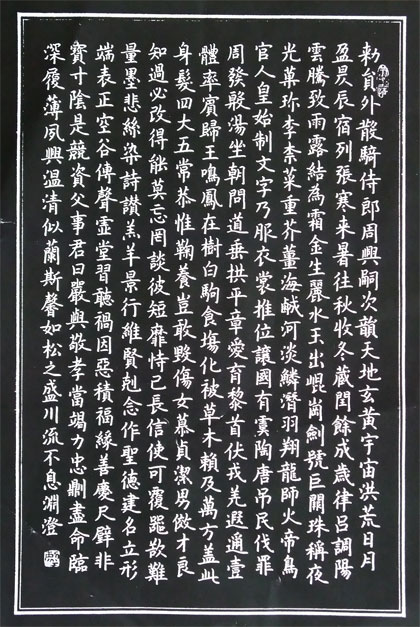 勅員外散騎侍郎周興嗣次韻天地玄黄宇宙洪荒日月
盈昃辰宿列張寒来暑往秋收冬蔵閏餘成歲律呂調陽
雲騰致雨露結為霜金生麗水玉出崐崗劍號巨闕珠稱夜
光菓珎李柰菜重芥薑海鹹河淡鱗潛羽翔龍師火帝鳥
官人皇始制文字乃服衣裳推位讓國有虞陶唐吊民伐罪
周發殷湯坐朝問道垂拱平章愛育黎首伏戎羌遐邇壹
體率賓歸王鳴鳳在樹白駒食場化被草木賴及萬方蓋此
身髮四大五常恭惟鞠養豈敢毀傷女慕貞潔男效才良
知過必改得能莫忘罔談彼短靡恃己長信使可覆器欲難
量墨悲絲染詩讃羔羊景行維賢剋念作聖徳建名立形
端表正空谷傳聲虛堂習聽禍因惡積福緣善慶尺璧非
寶寸陰是競資父事君曰嚴與敬孝當竭力忠則盡命臨
深履薄夙興温清似蘭斯馨如松之盛川流不息淵澄